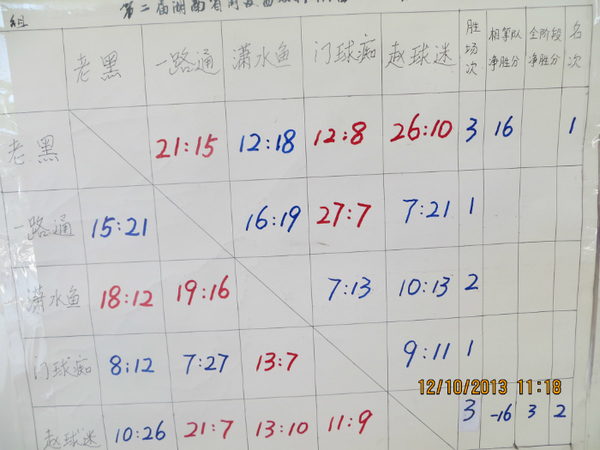 第二届湖南省
组
老黑 一路通 潇水鱼 门球痴 赵球迷 胜场次 相等队净胜分 全阶段净胜分 名次
老黑 21:15 12:18 12:8 26:10 3 16 1
一路通 15:21 16:19 27:7 7:21 1
潇水鱼 18:12 19:16 7:13 10:13 2
门球痴 8:12 7:27 13:7 9:11 1
12/10/2013 11:18
赵球迷 10:26 21:7 13:10 11:9 3 -16 3 2